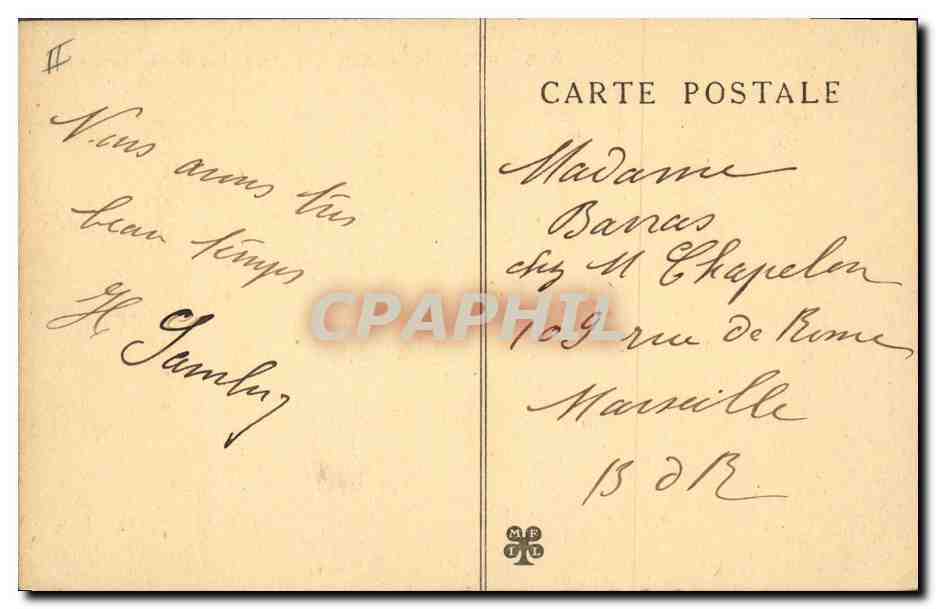 II
Nous avons très
beau temps
H
CARTE POSTALE
Madame
Barras
chez M Chapelon
109 rue de Rome
Marseille
B d R
CPAPHIL
M F
I L